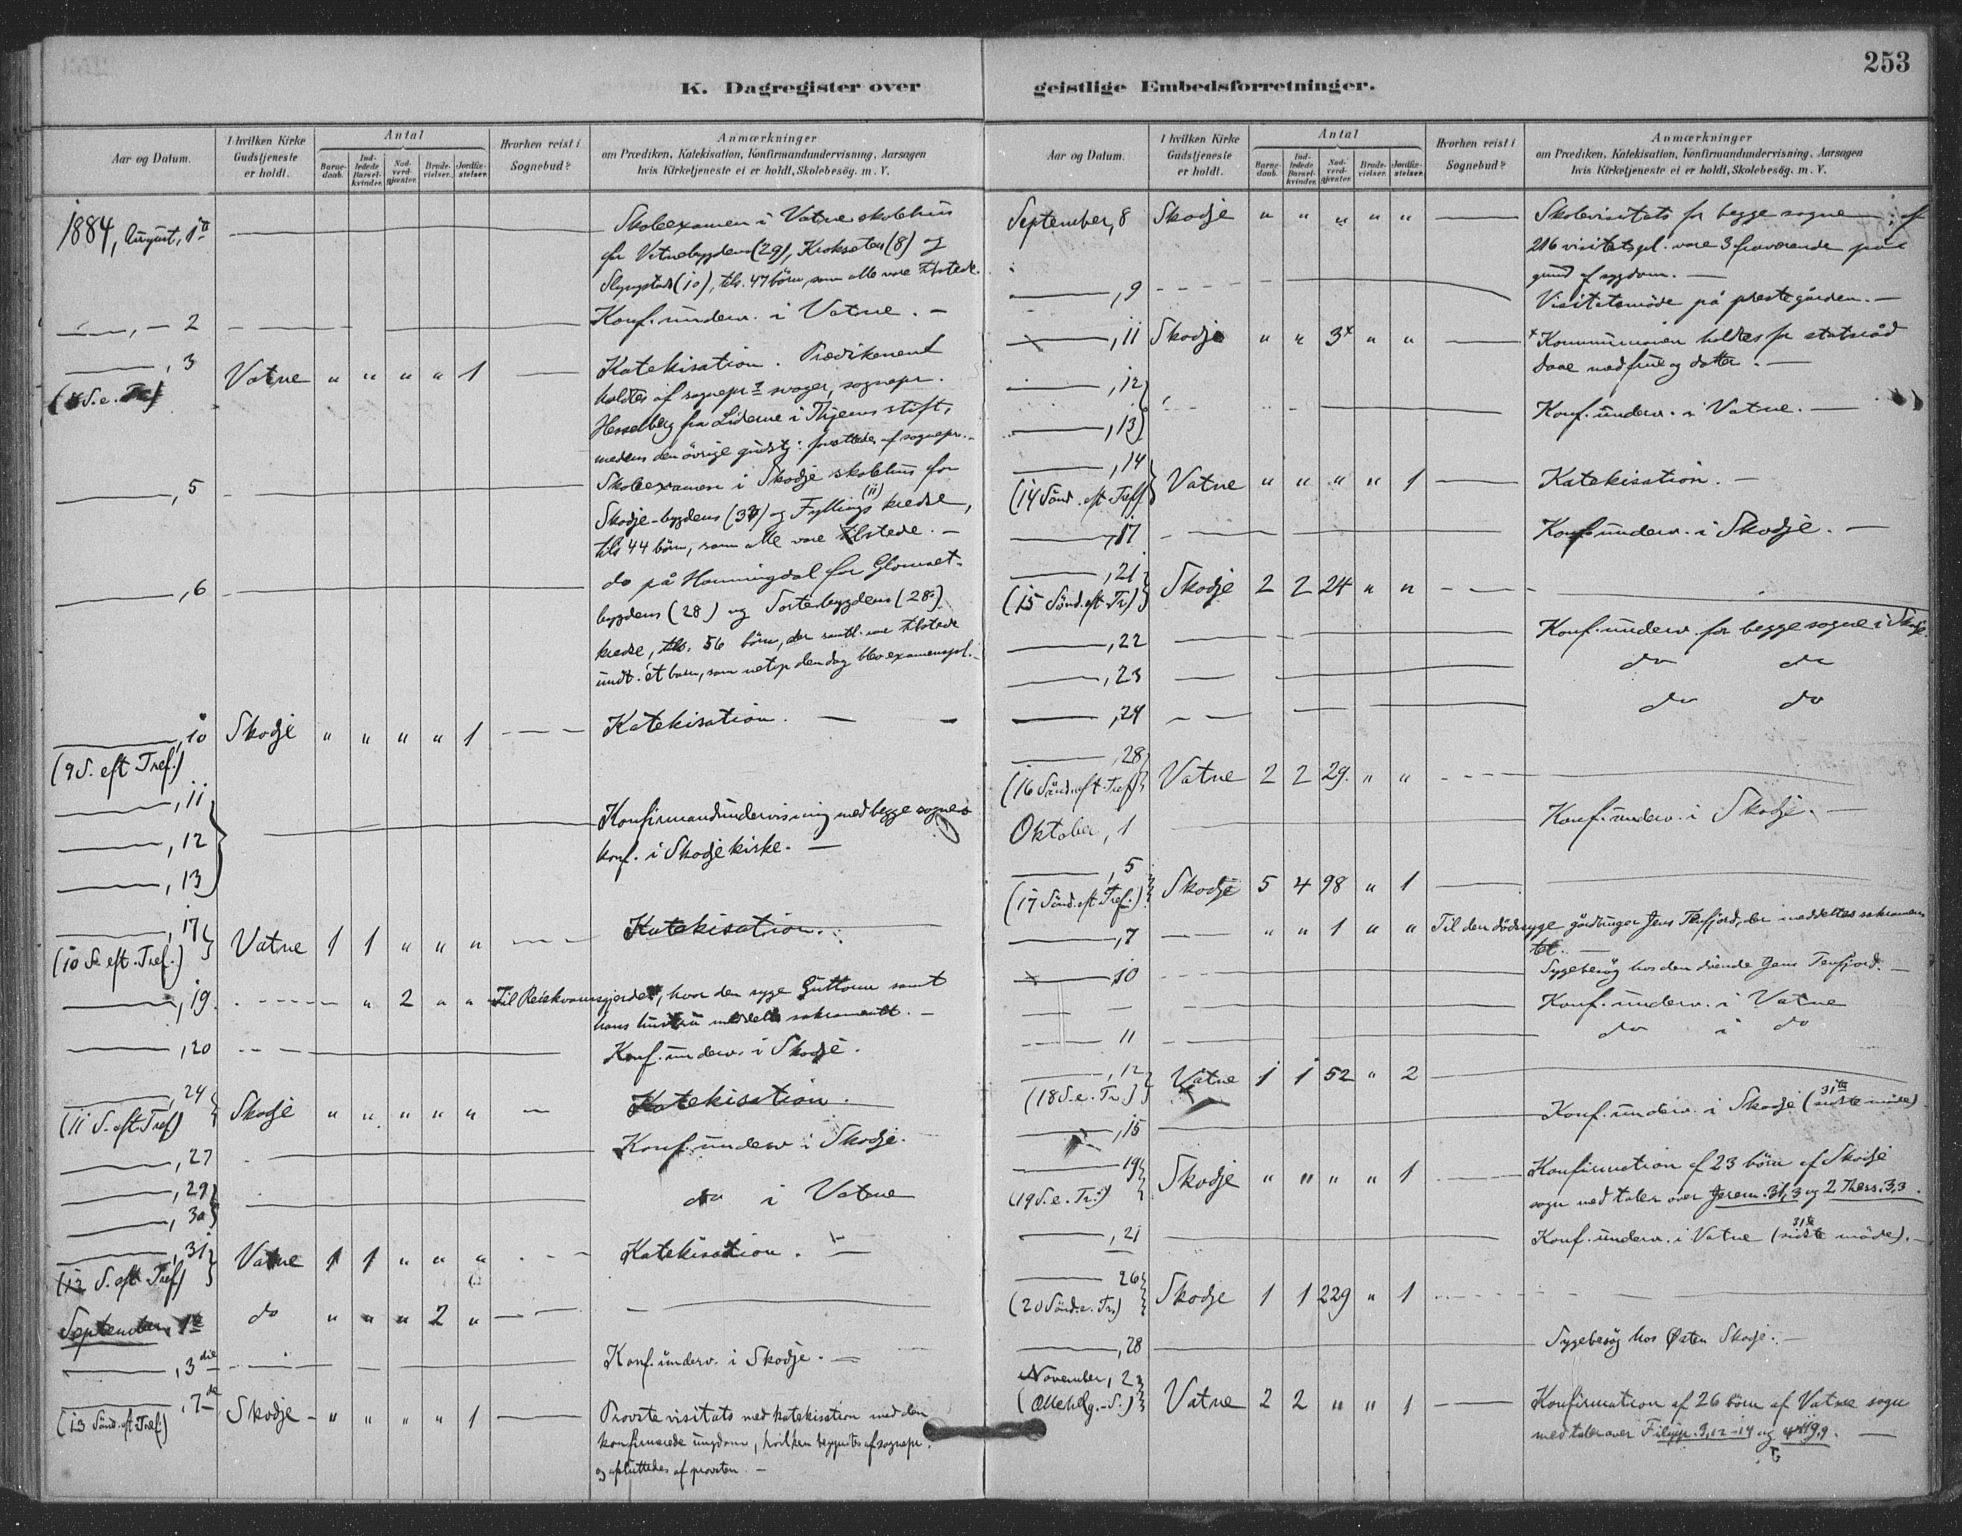 253
K. Dagregister over geistlige Embedsforretninger.
Aar og Datum.
I hvilken Kirke Gudstjeneste er holdt.
Antal
Barnedaab.
Indledede Barselkvinder.
Nadverdgjester.
Brudevielser.
Jordfæstelser.
Hvorhen reist i Sognebud?
Anmærkninger
om Prædiken, Katekisation, Konfirmandundervisning, Aarsagen
hvis Kirketjeneste ei er holdt, Skolebesøg. m. V.
1884, August, 1ste Skoleexamen i Vatne skolehus
for Vatnebygdens (29), Krokseter (8) og
Slyngstads (10), tils. 47 börn, som alle vare tilstede.
2 Konf. underv. i Vatne.
3 Vatne " " " " 1 Katekisation. Prædikenen
(8 S. e. Tr.) holdtes af sognepr.s svager, sognepr.
Hesselberg fra Lierne i Thjems stift,
medens den övrige gudstj. forrettedes af sognepr.
5 Skoleexamen i Skodje skolehus for
Skodje-bygdens (33) og Fyllings (11) kredse,
tils 44 börn, som alle vare tilstede.
6 do på Honningdal for Glomset-
bygdens (28) og Sortebygdens (28)
kredse, tils. 56 börn, der samtl. vare tilstede
undt. ét barn, som netop den dag blev examenspl.
10 Skodje " " " " 1 Katekisation.
(9 S. eft Tref.)
11
12 Konfirmandundervisning med begge sognes
13 konf. i Skodje kirke.
17 Vatne 1 1 " " " Katekisation.
(10 S. eft. Tref.)
19 " 2 " " Til Reiakvamsgjerdet, hvor den syge Guttorm samt
hans hustru meddeltes sakramentet.
20 Konf. underv. i Skodje.
24 Skodje " " " " " Katekisation.
(11 S. eft. Tref)
27 Konf. underv i Skodje.
29 do i Vatne
30
31 Vatne 1 1 " " " Katekisation.
(12 S. eft Tref)
September, 1ste do " " " 2 "
3die Konf. underv. i Skodje.
7de Skodje " " " " 1 Provstevisitats med katekisation med den
(13 Sönd. eft. Tref) konfirmerede ungdom, hvilken begyndtes af sognepr.
og afsluttedes af provsten.
Aar og Datum.
I hvilken Kirke Gudstjeneste er holdt.
Antal
Barnedaab.
Indledede Barselkvinder.
Nadverdgjester.
Brudevielser.
Jordfæstelser.
Hvorhen reist i Sognebud?
Anmærkninger
om Prædiken, Katekisation, Konfirmandundervisning, Aarsagen
hvis Kirketjeneste ei er holdt, Skolebesøg. m. V.
September, 8 Skodje " " " " " Skolevisitats for begge sogne; af
216 visitatspl. vare 3 fraværende paa
grund af sygdom.
9 Visitatsmöde på prestegården.
11 Skodje " " 3x " " x Kommunionen holdtes for statsråd
Daae med frue og datter.
12
13 Konf. underv. i Vatne.
14 Vatne " " " " 1 Katekisation.
(14 Sönd. eft. Tref)
17 Konf. underv. i Skodje.
21 Skodje 2 2 24 " "
(15 Sönd. eft. Tr)
22 Konf. underv. for begge sogne i Skodje.
23 do do
24 do do
28 Vatne 2 2 29. " "
(16 Sönd. eft. Tref)
Oktober, 1 Konf. underv. i Skodje.
5 Skodje 5 4 98 " 1
(17 Sönd. eft. Tref.)
7 " " 1 " " Til den dödssyge gårdbruger Jens Tenfjord, der meddeltes sakramen-
tet.
10 Sygebesög hos den döende Jens Tenfjord.
Konf. underv. i Vatne
11 do i do
12 Vatne 1 1 52 " 2
(18 S. e. Tr.)
15 Konf. underv. i Skodje (31te sidste möde)
19 Skodje " " " " 1 Konfirmation af 23 börn af Skodje
(19 S. e. Tr.) sogn med taler over Jerem. 31,3 og 2 Thess. 3,3.
21 Konf. underv. i Vatne (31te sidste möde).
26 Skodje 1 1 229 " 1
(20 Sönd. e. Tr.)
28 Sygebesög hos Østen Skodje.
November, 2 Vatne 2 2 " " 1 Konfirmation af 26 börn af Vatne sogn
(Allehlg.-S.) med taler over Filipp. 3,12-14 og